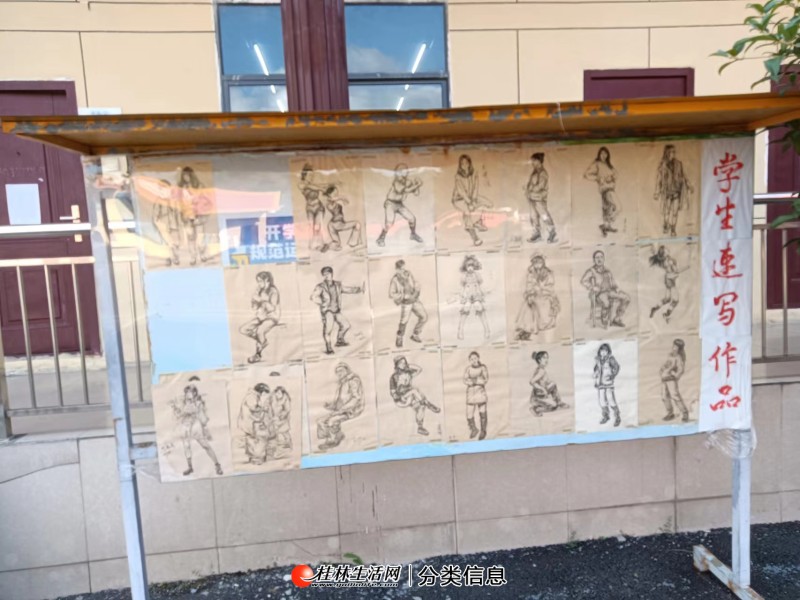 开学
规范运
学生速写作品
桂林生活网 | 分类信息